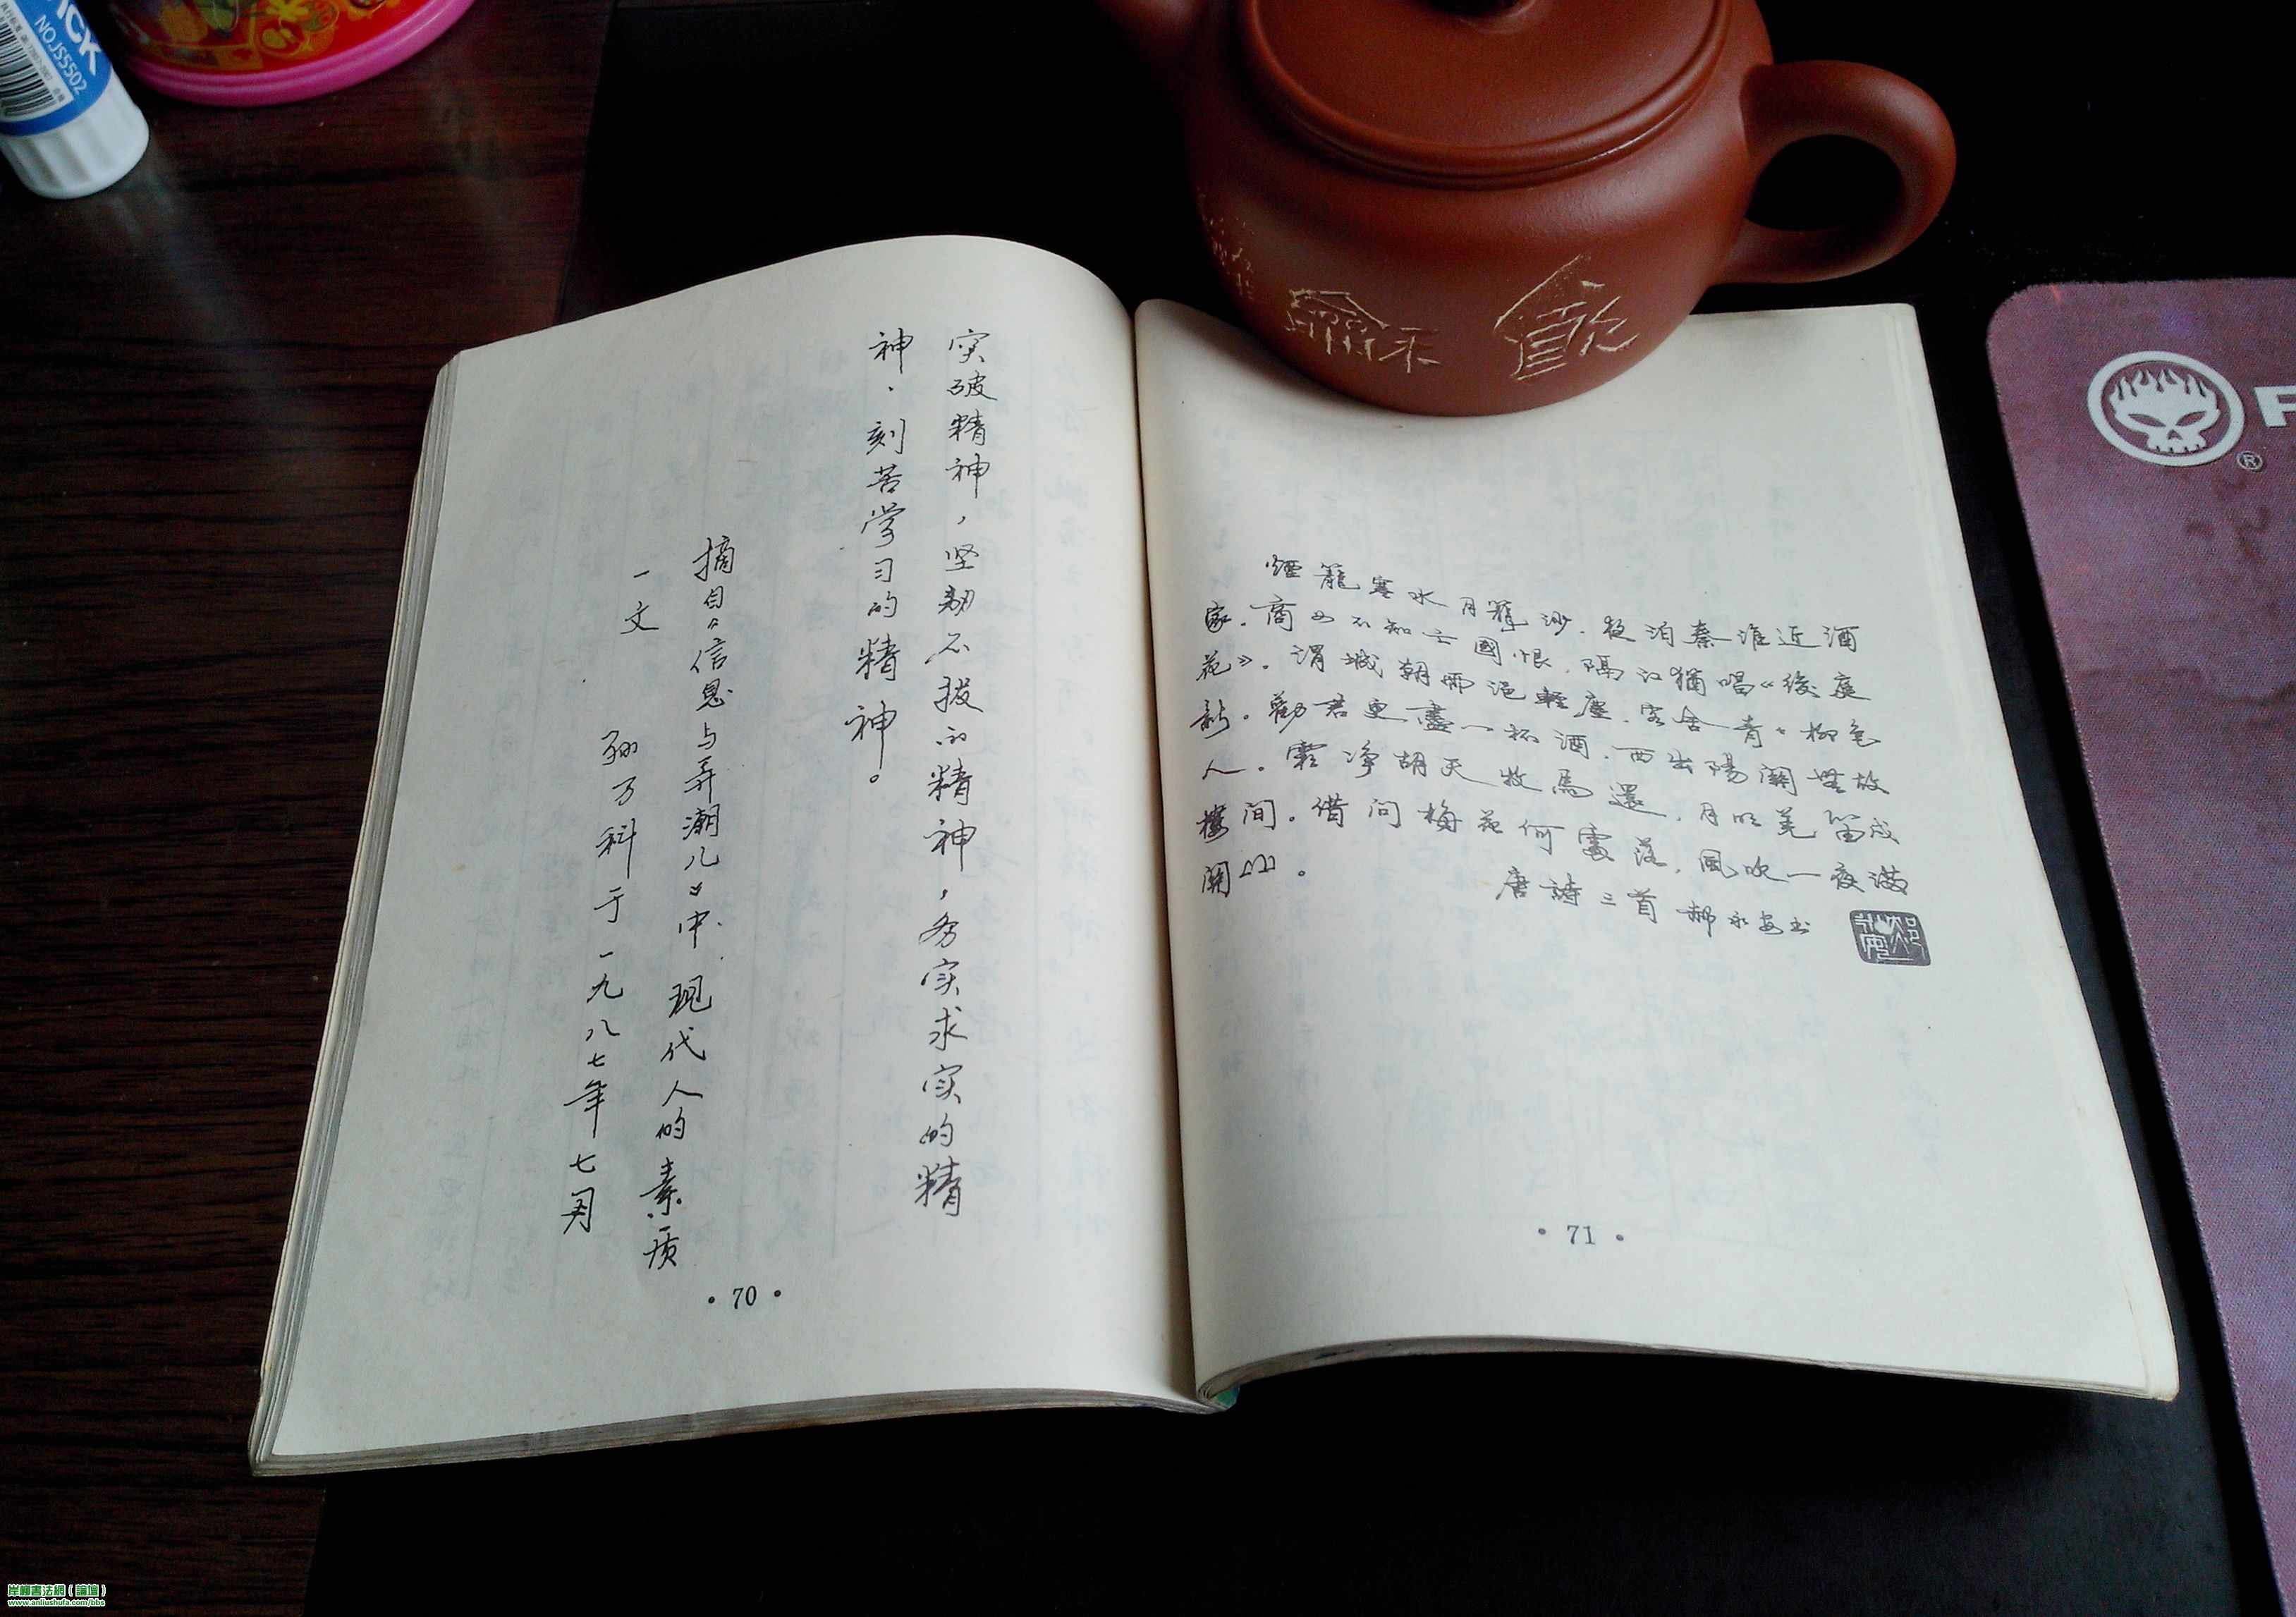 NOJS5502
突破精神，坚韧不拔的精神，务实求实的精
神，刻苦学习的精神。
摘自《信息与弄潮儿》中现代人的素质
一文
孙万科于一九八七年七月
·70·
煙籠寒水月籠沙．夜泊秦淮近酒
家．商女不知亡國恨．隔江猶唱《後庭
花》．渭城朝雨浥輕塵．客舍青々柳色
新．勸君更盡一杯酒．西出陽關無故
人．霜净胡天牧馬還．月明羌笛戍
樓间．借问梅花何處落．風吹一夜滿
關山．
唐詩三首 郝永安书
·71·
岸柳書法網（論壇）
www.anliushufa.com/bbs